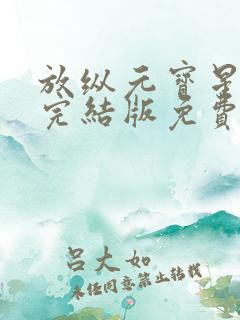 放纵元寶星
完結版免費
吕大如
未经同意禁止转载